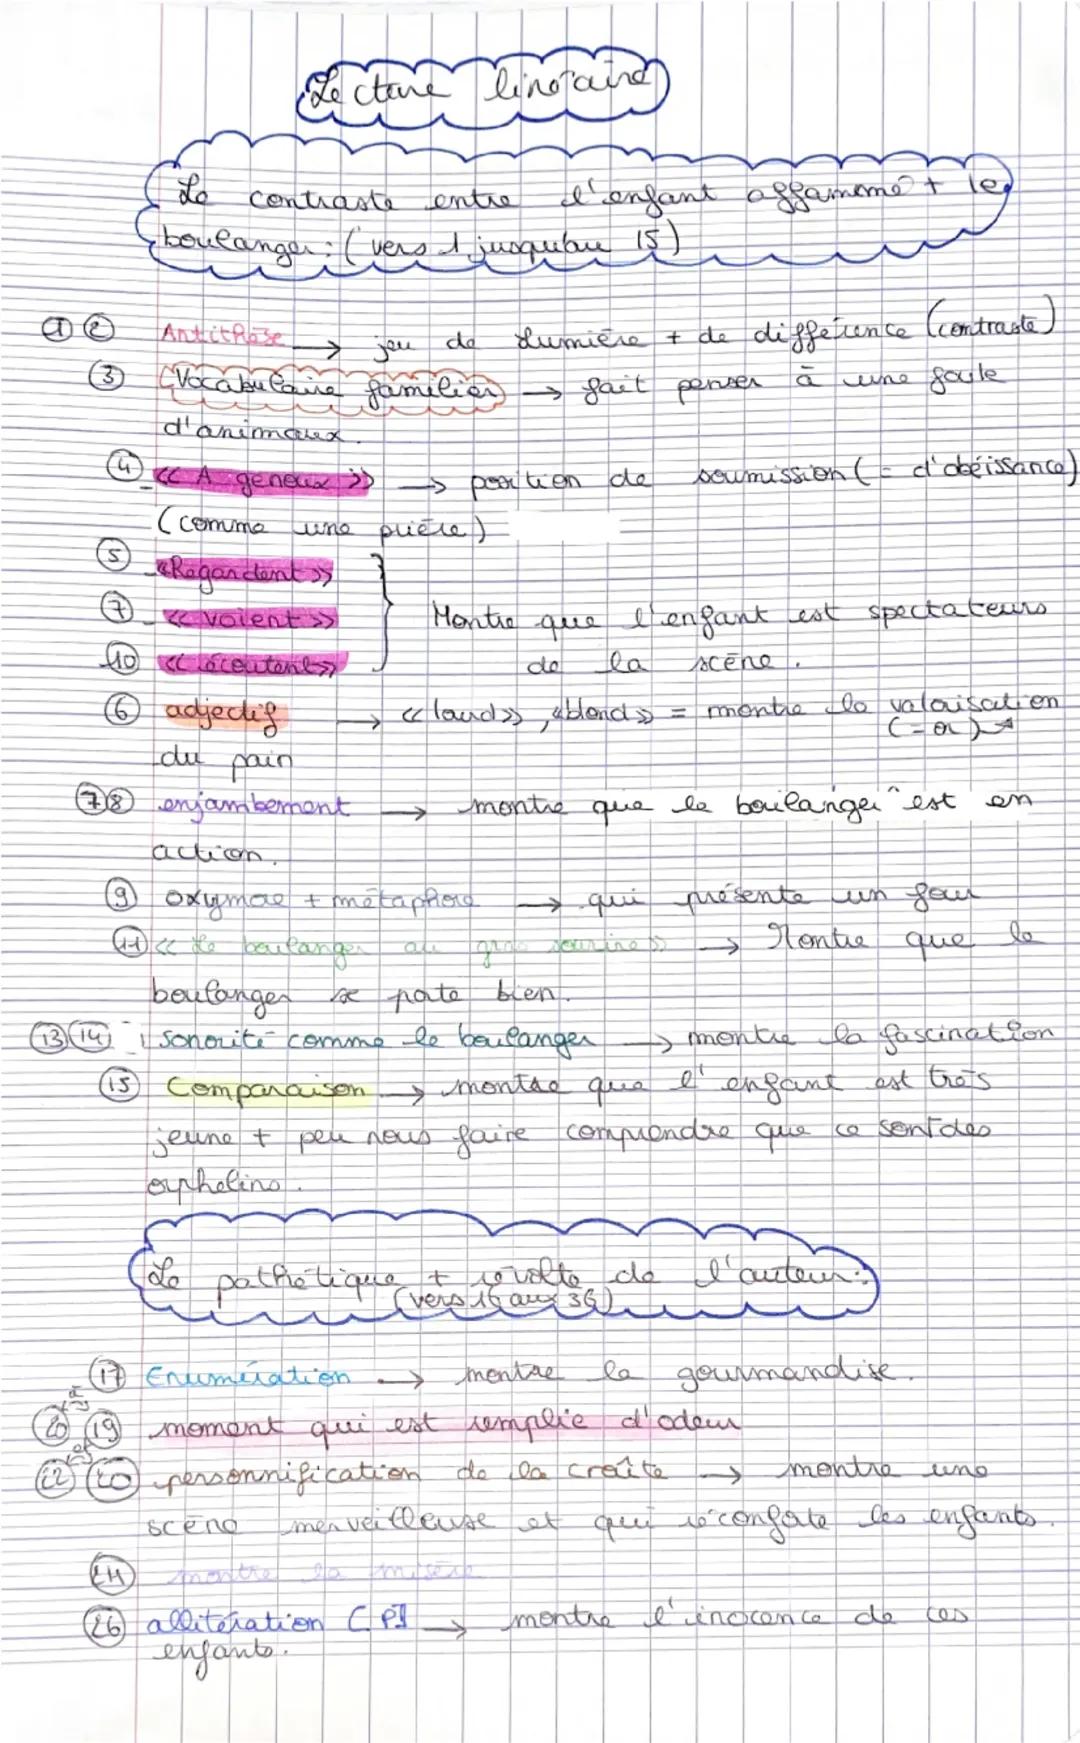 Lecture linéaire
Le contraste entre l'enfant affammé + le
boulanger : (vers 1 jusqu'au 15)
① ② Antithèse → jeu de lumière + de différence (contraste)
③ Vocabulaire familier → fait penser à une foule
d'animaux.
④ « A genoux » → position de soumission (= d'obéissance)
(comme une prière)
⑤ «Regardent »
⑦ « voient » Montre que l'enfant est spectateurs
⑩ « écoutent» de la scène.
⑥ adjectif → « lourd» , «blond» = montre la valorisation
(= or)
du pain
⑦⑧ enjambement → montre que le boulanger est en
action.
⑨ oxymore + métaphore → qui présente un four
⑪ « Le boulanger au gras sourire » → Montre que le
boulanger se porte bien.
⑬⑭ sonorité comme le boulanger → montre la fascination
⑮ Comparaison → montre que l'enfant est très
jeune + peu nous faire comprendre que ce sont des
orphelins.
Le pathétique + révolte de l'auteur :
(vers 16 aux 36)
⑰ Enumération → montre la gourmandise.
⑳ à ⑲ moment qui est remplie d'odeur
㉒ et ⑳ personnification de la croûte → montre une
scène merveilleuse et qui réconforte les enfants.
㉔ montre la misère
㉖ allitération [P] → montre l'inocence de ces
enfants.